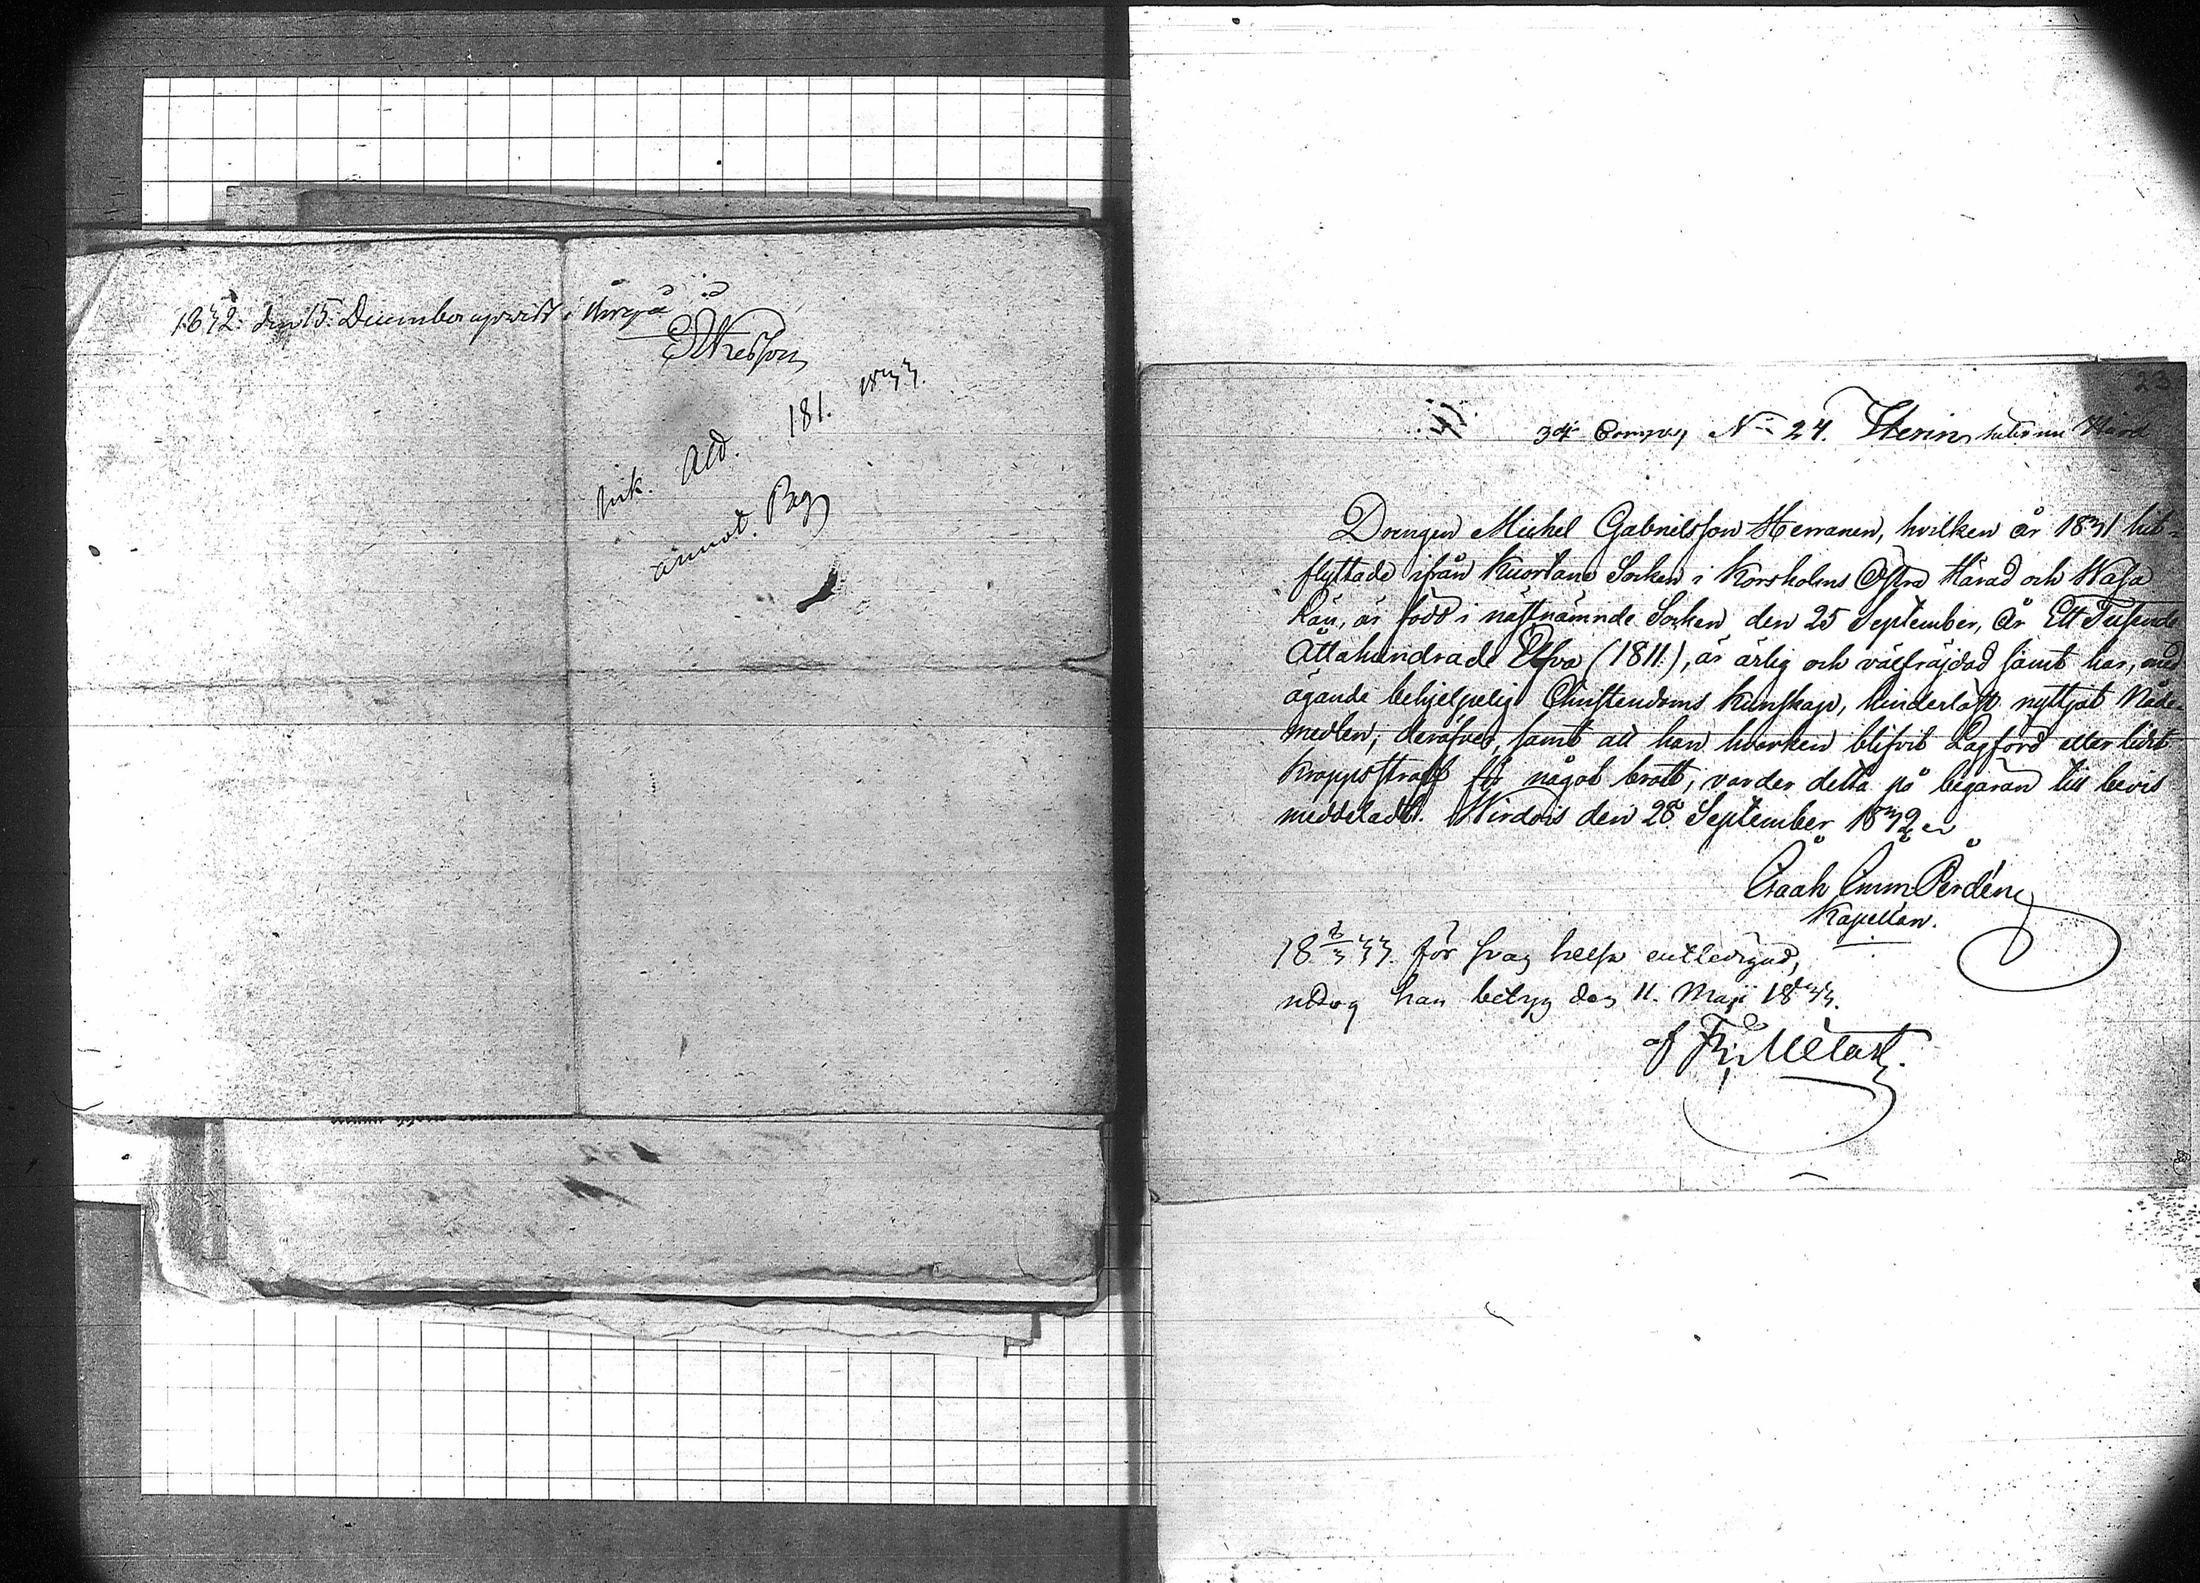 1832: den 15. December upvist i
181. 1833.
annot.
23
3dj Comp. No 24. heter nu Hård
Drengen Michel Gabrielsson Herranen, hvilken år 1831 hit-
flyttade ifrån Kuortane Socken i Korsholms Östra Härad och Wasa
Län, är född i nästnämnde Socken den 25 September, år Ett Tusende
Åttahundrade Elfva (1811.), är ärlig och välfräjdad samt har, med
ägande behjelpelig Christendoms Kunskap, hinderlöst nyttjat Nåde-
medlen; deröfver, samt att han hvarken blifvit Lagförd eller lidit
Kroppsstraff för något brott, varder detta på begäran till bevis
meddeladt. Wirdois den 28 September 1832
Isaak Emm Perdén
Kapellan.
1833. för svag helsa entledigad,
undog han betyg den 11. Maji 1833.
af